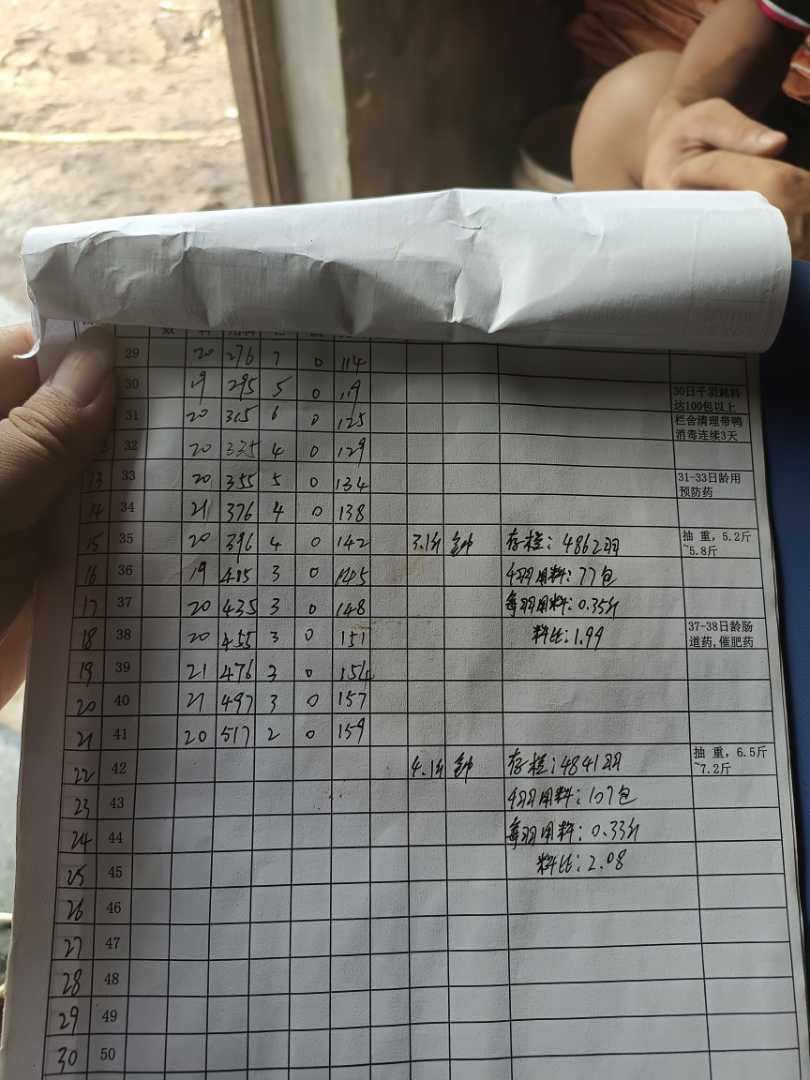 数 料 用料
29 20 276 7 0 114
30 19 295 5 0 119 30日千羽耗料
达100包以上
31 20 315 6 0 125 栏舍清理带鸭
消毒连续3天
32 20 335 4 0 129
13 33 20 355 5 0 134 31-33日龄用
预防药
14 34 21 376 4 0 138
15 35 20 396 4 0 142 3.1斤 存栏:4862羽 抽 重,5.2斤
~5.8斤
16 36 19 415 3 0 145 千羽用料:77包
17 37 20 435 3 0 148 每羽用料:0.35斤
18 38 20 455 3 0 151 料比:1.99 37-38日龄肠
道药,催肥药
19 39 21 476 3 0 154
20 40 21 497 3 0 157
21 41 20 517 2 0 159
22 42 4.1斤 存栏:4841羽 抽 重,6.5斤
~7.2斤
23 43 千羽用料:107包
24 44 每羽用料:0.33斤
25 45 料比:2.08
26 46
27 47
28 48
29 49
30 50